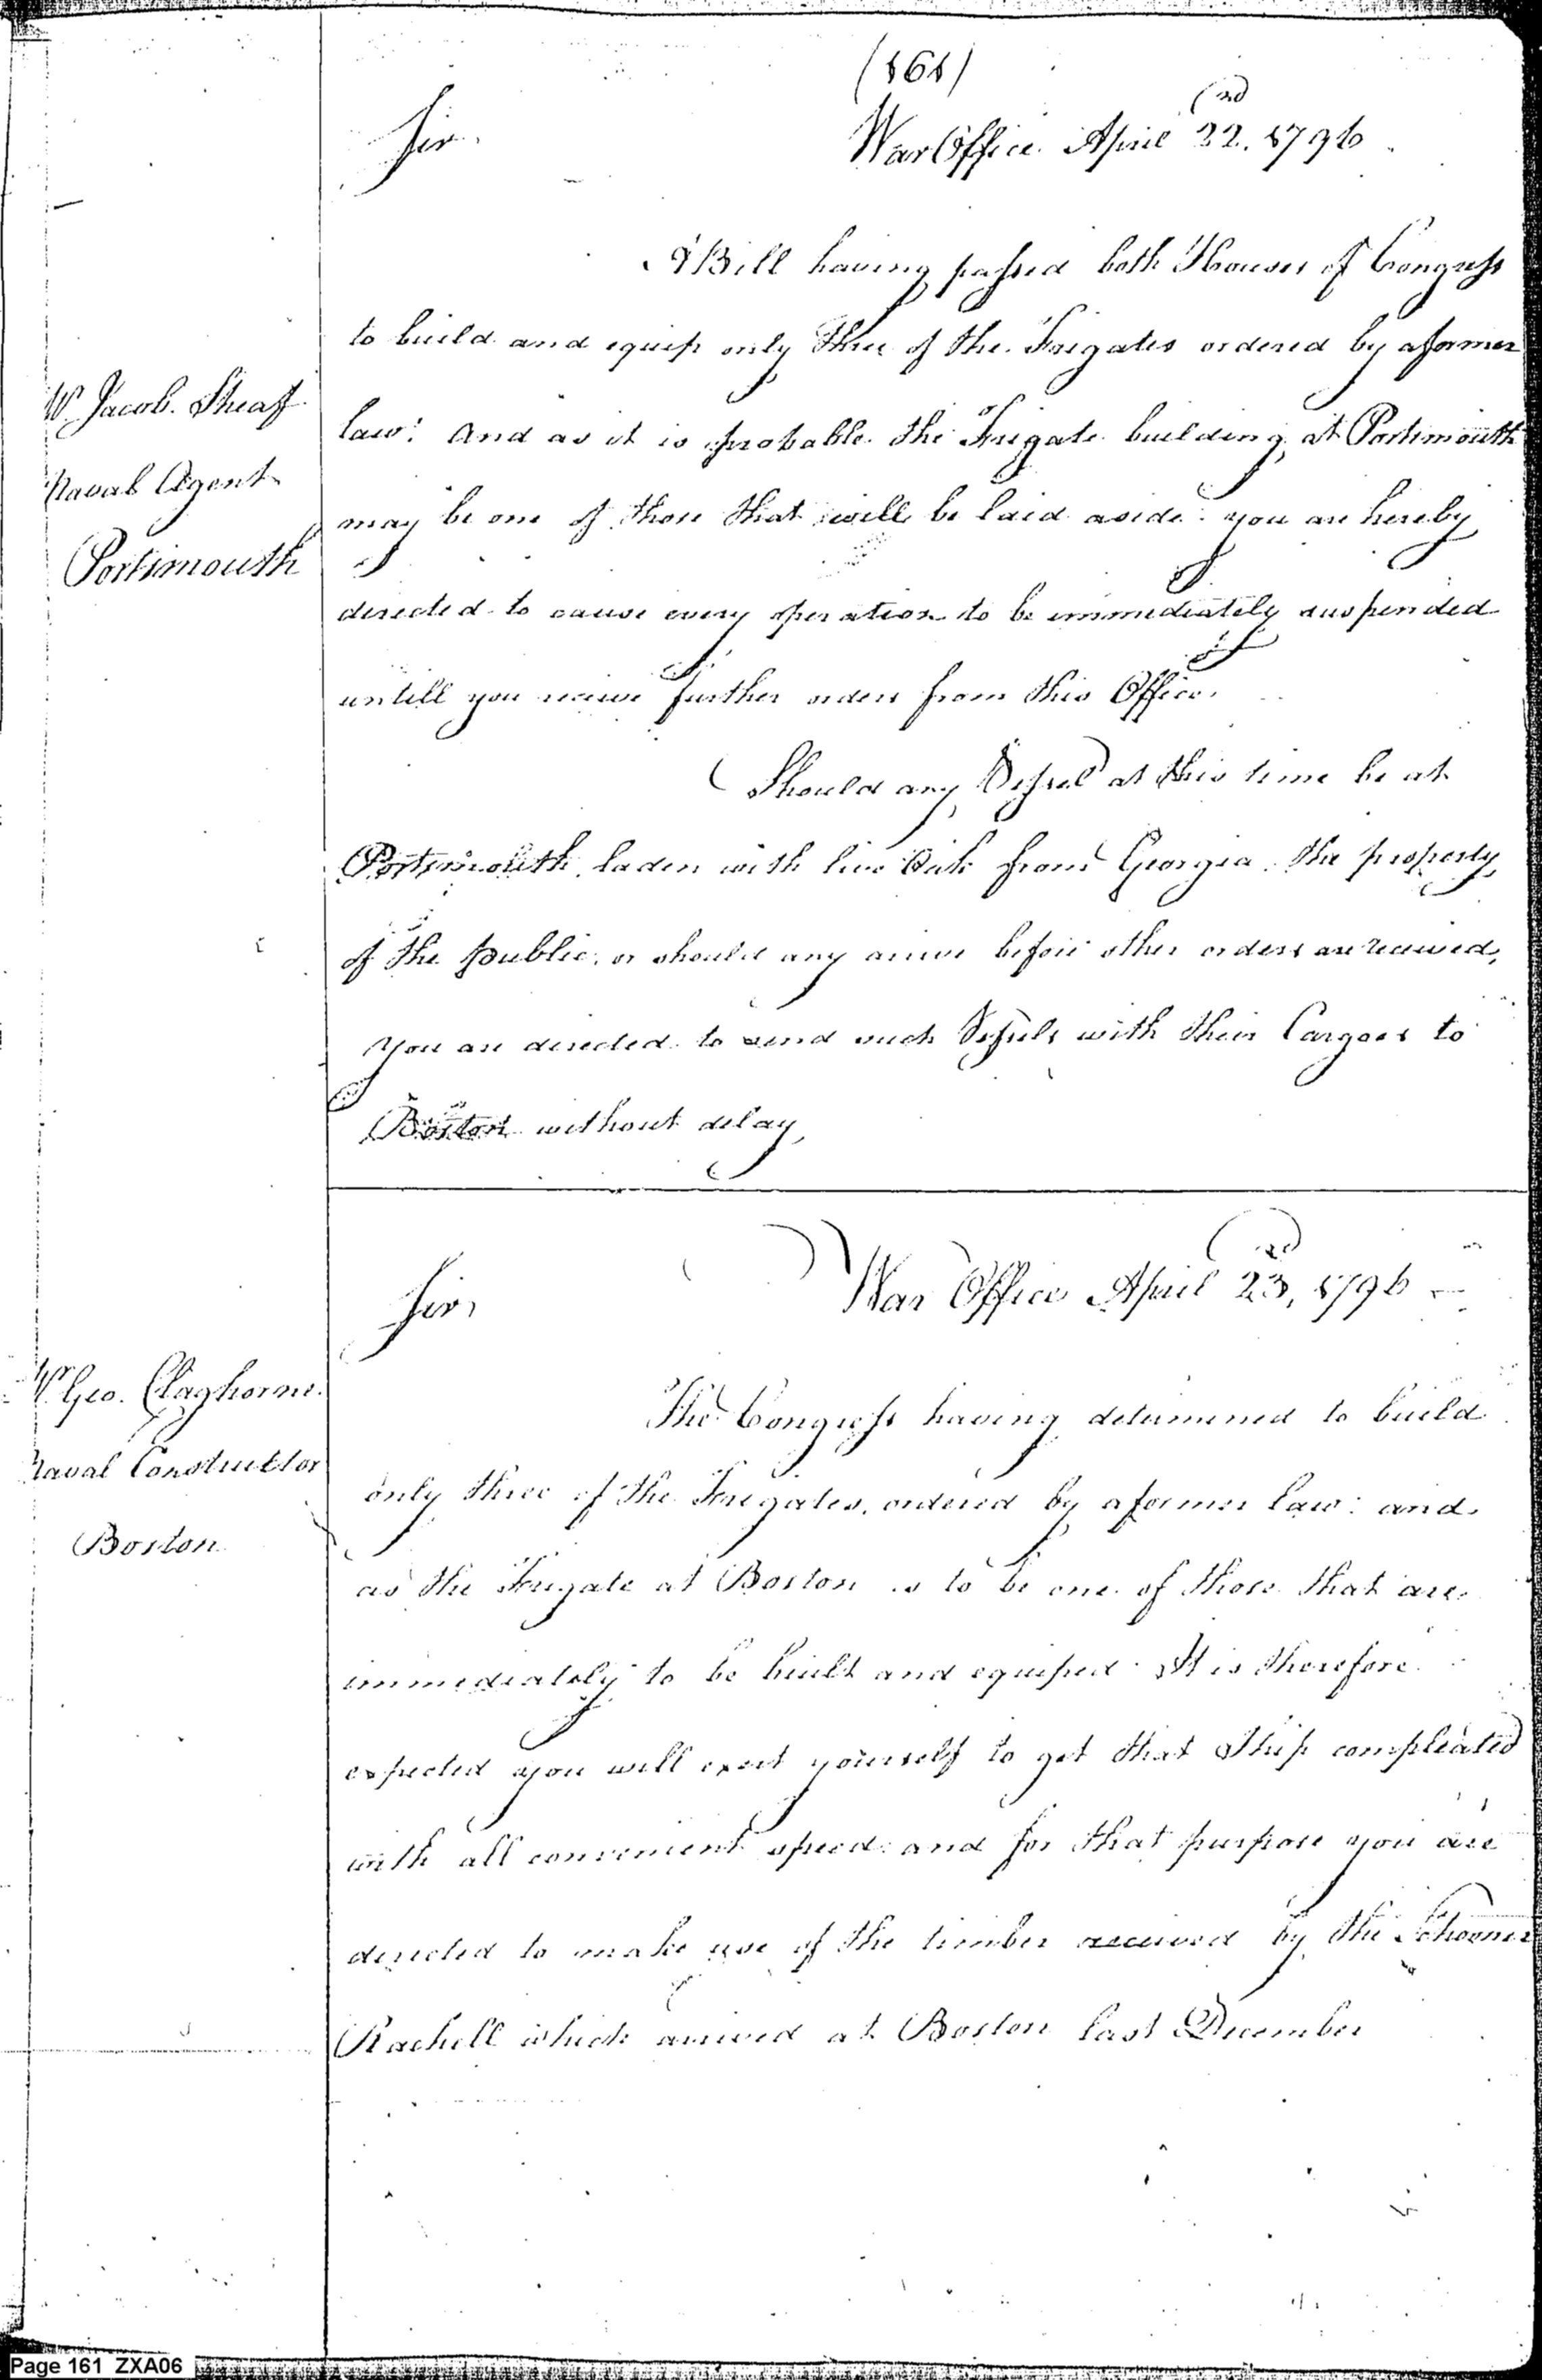 (161)
War Office April 22nd, 1796
Sir,
A Bill having passed both Houses of Congress
to build and equip only three of the Frigates ordered by a former
law: And as it is probable the Frigate building at Portsmouth
may be one of those that will be laid aside: you are hereby
directed to cause every operation to be immediately suspended
untill you receive further orders from this Office.
Should any Vessel at this time be at
Portsmouth, laden with live Oak from Georgia, the property
of the public, or should any arrive before other orders are received,
you are directed to send such Vessels with their Cargoes to
Boston without delay
Mr Jacob. Sheaf
Naval Agent
Portsmouth
War Office April 23rd, 1796
Sir,
The Congress having determined to build
only three of the Frigates, ordered by a former law: and
as the Frigate at Boston is to be one of those that are
immediately to be built and equiped. It is therefore
expected you will exert yourself to get that Ship compleated
with all convenient speed: and for that purpose you are
directed to make use of the timber received by the Schooner
Rachell which arrived at Boston last December
Mr Geo. Claghorne.
Naval Constructor
Boston
Page 161 ZXA06